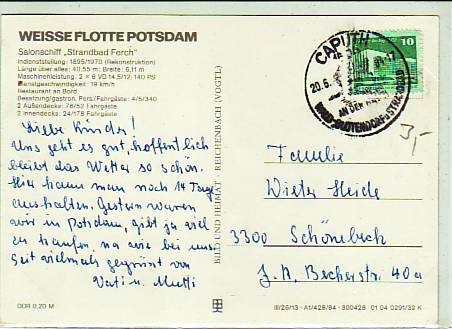 WEISSE FLOTTE POTSDAM
Salonschiff „Strandbad Ferch"
Indienststellung: 1895/1970 (Rekonstruktion)
Länge über alles: 40,55 m; Breite: 6,11 m
Maschinenleistung: 2 × 6 VD 14,5/12, 140 PS
Dienstgeschwindigkeit: 19 km/h
Restaurant an Bord
Besatzung/gastron. Pers./Fahrgäste: 4/5/340
2 Außendecks: 76/52 Fahrgäste
2 Innendecks: 24/178 Fahrgäste
Liebe Kinder!
Uns geht es gut, hoffentlich
bleibt das Wetter so schön.
Hier kann man noch 14 Tage
aushalten. Gestern waren
wir in Potsdam, gibt ja viel
zu kaufen, na wie bei uns.
Seit vielmals gegrüsst von
Vati u. Mutti
DDR 0,20 M
BILD UND HEIMAT REICHENBACH (VOGTL)
CAPUTH
20.6.
AN DEN
10
3,-
Familie
Dieter Heide
3300 Schönebeck
J. R. Becherstr. 40a
III/26/13 · A1/428/84 · 300428 01 04 0291/32 K